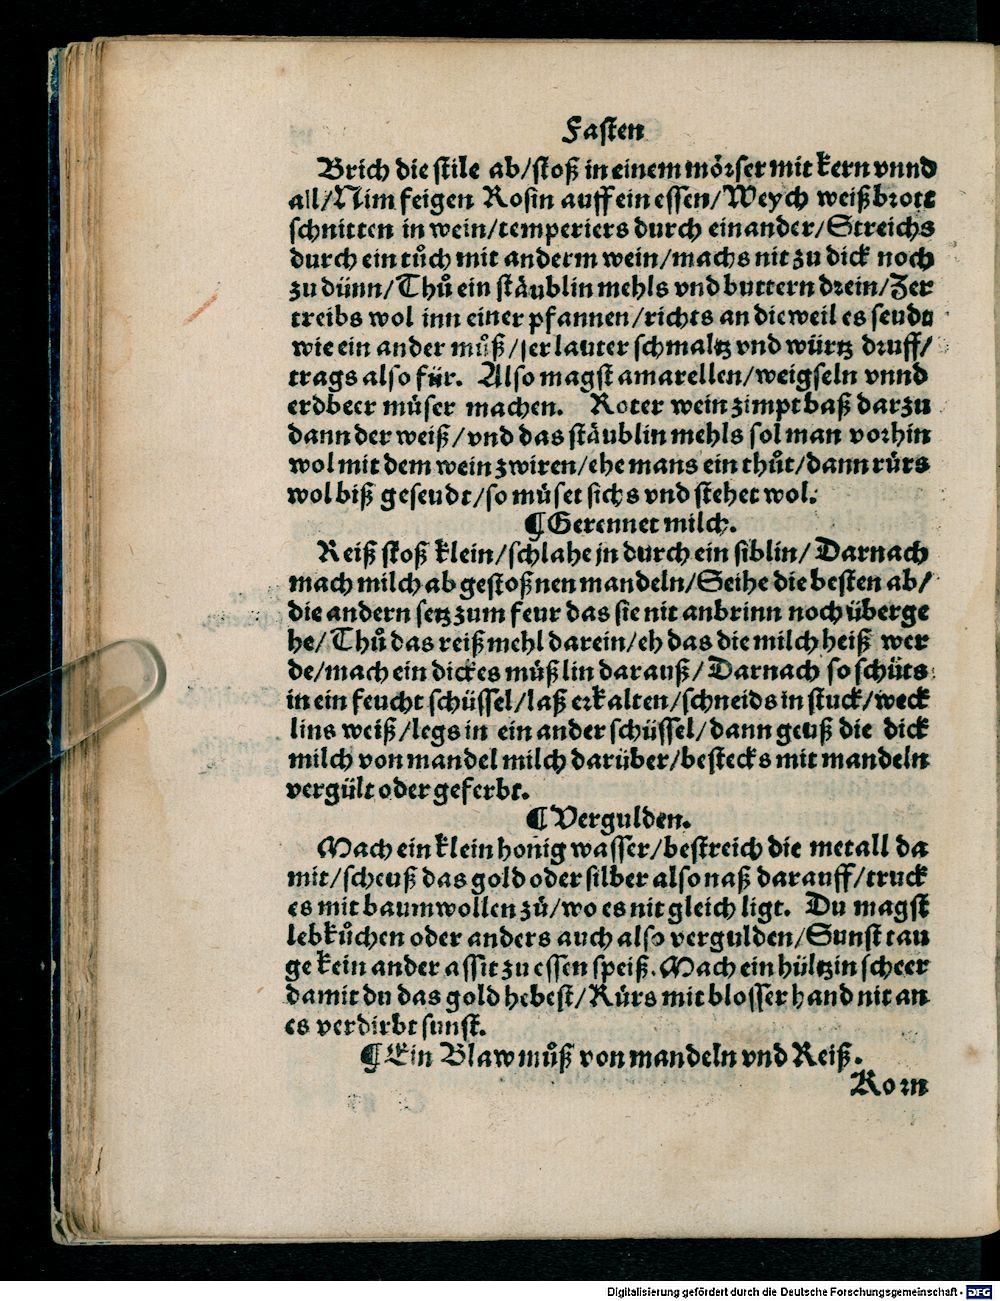 Fasten
Brich die stile ab/stoß in einem mörser mit kern vnnd
all/Nim feigen Rosin auff ein essen/Weych weißbrott
schnitten in wein/temperiers durch einander/Streichs
durch ein tuͦch mit anderm wein/machs nit zu dick noch
zu dünn/Thuͦ ein stäublin mehls vnd buttern drein/Zer
treibs wol inn einer pfannen/richts an dieweil es seudt
wie ein ander muͦß/zerlauter schmaltz vnd würtz druff/
trags also für. Also magst amarellen/weigseln vnnd
erdbeer müser machen. Roter wein zimpt baß darzu
dann der weiß/vnd das stäublin mehls sol man vorhin
wol mit dem wein zwiren/ehe mans ein thuͦt/dann rürs
wol biß geseudt/so müset sichs vnd stehet wol.
¶Gerennet milch.
Reiß stoß klein/schlahe jn durch ein siblin/Darnach
mach milch ab gestoßnen mandeln/Seihe die besten ab/
die andern setz zum feur das sie nit anbrinn noch überge
he/Thuͦ das reißmehl darein/eh das die milch heiß wer
de/mach ein dickes müßlin darauß/Darnach so schüts
in ein feucht schüssel/laß erkalten/schneids in stuck/weck
lins weiß/legs in ein ander schüssel/dann geuß die dick
milch von mandel milch darüber/bestecks mit mandeln
vergült oder geferbt.
¶Vergulden.
Mach ein klein honig wasser/bestreich die metall da
mit/scheuß das gold oder silber also naß darauff/truck
es mit baumwollen zuͦ/wo es nit gleich ligt. Du magst
lebkuͦchen oder anders auch also vergulden/Sunst tau
ge kein ander assit zu essen speiß. Mach ein hültzin scheer
damit du das gold hebest/Rürs mit blosser hand nit an
es verdirbt sunst.
¶Ein Blaw muͦß von mandeln vnd Reiß.
Korn
Digitalisierung gefördert durch die Deutsche Forschungsgemeinschaft - DFG